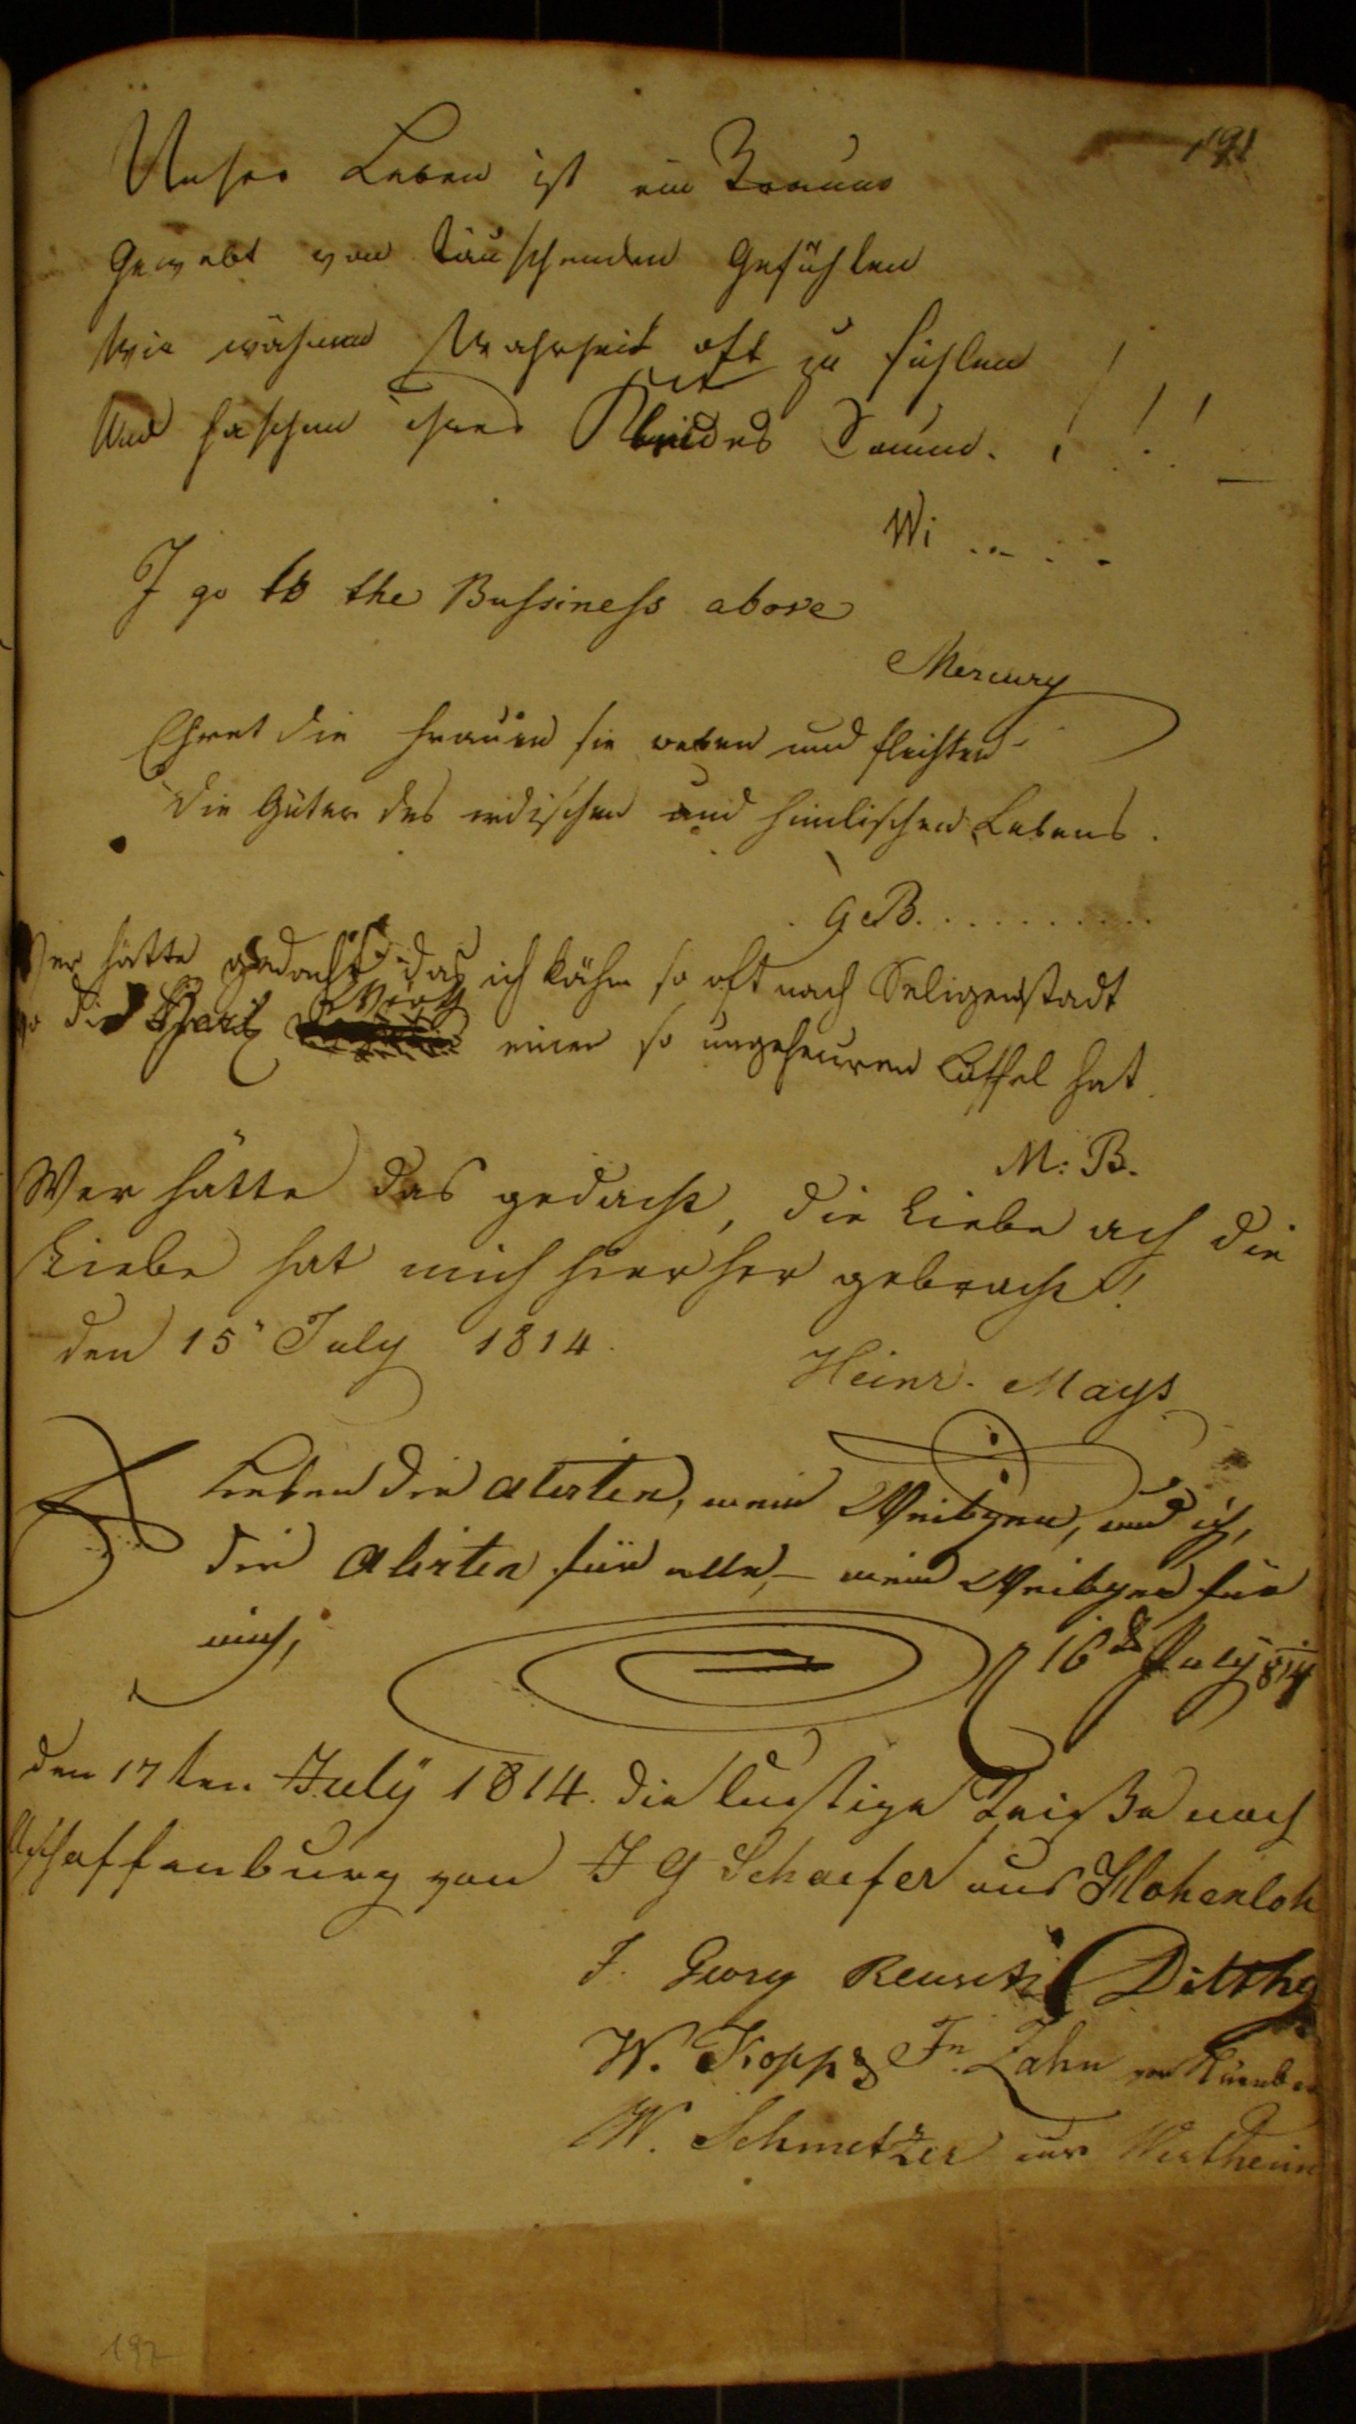 191
Unser Leben ist ein Traum
Gewebt von täuschenden Gefühlen
Wir wähnen Wahrheit oft zu fühlen
Und haschen ihres Kleides Saum. ! ! !
Wi .. . .
I go to the Bussiness above
Mercury
Ehret die Frauen sie weben und flechten
die Güter des irdischen und himlischen Lebens.
G B. . . . . . . . . .
Wer hätte gedacht, das ich kähm so oft nach Seligenstadt
wo die einen so ungeheuren Löffel hat.
M: B.
Wer hätte das gedacht, die Liebe ach die
Liebe hat mich hierher gebracht!
den 15 July 1814.
Heinr. Mays
Leben die alirten, mein Weibgen, und ich,
die alirten für alle, – mein Weibgen für
mich,
16 July 814
den 17ten July 1814. die lustige Reiße nach
Aschaffenburg von J G Schaefer aus Hohenloh
J. Georg
W. Kopp Jn. Zahn
W. Schmetzer aus Wertheim
192